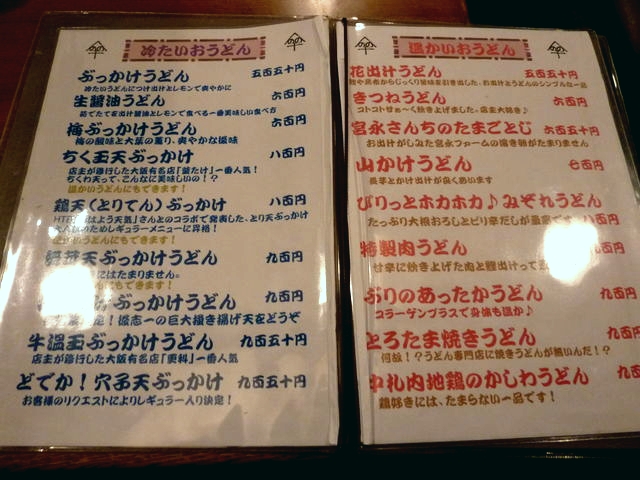 冷たいおうどん
ぶっかけうどん 五百五十円
冷たいうどんにつけ出汁とレモンで爽やかに
生醤油うどん 六百円
茹でたてを出汁醤油とレモンで食べる一番美味しい食べ方
梅ぶっかけうどん 六百円
梅の酸味と大葉の薫り、爽やかな風味
ちく玉天ぶっかけ 八百円
店主が修行した大阪有名店「釜たけ」一番人気！
ちくわ天って、こんなに美味しいの！？
温かいうどんにもできます！
鶏天（とりてん）ぶっかけ 八百円
はよう天気」さんとのコラボで発表した、とり天ぶっかけ
ためレギュラーメニューに昇格！
うどんにもできます！
ぶっかけうどん 九百円
にはたまりません。
にもできます！
ぶっかけうどん 九百円
の巨大掻き揚げ天をどうぞ
牛温玉ぶっかけうどん 九百五十円
店主が修行した大阪有名店「更科」一番人気
どでか！穴子天ぶっかけ 九百五十円
お客様のリクエストによりレギュラー入り決定！
温かいおうどん
花出汁うどん 五百五十円
じっくり旨味を引き出した、お出汁とうどんのシンプルな一品
きつねうどん 六百円
コトコト甘ぁ〜く焚き上げました。店主大好き♪
宮永さんちのたまごとじ 六百五十円
お出汁がしみた宮永ファームの溶き卵がたまりません
山かけうどん 七百円
長芋とかけ出汁が良くあいます
ぴりっとホカホカ♪みぞれうどん
たっぷり大根おろしとピリ辛だしが 八百円
特製肉うどん 九百円
甘辛に炊き上げた肉と鰹出汁って
ぶりのあったかうどん 九百円
コラーゲンプラスで身体も温か♪
とろたま焼きうどん 九百
何故！？うどん専門店に焼きうどんが無いんだ！？
中札内地鶏のかしわうどん 九百
鶏好きには、たまらない一品です！